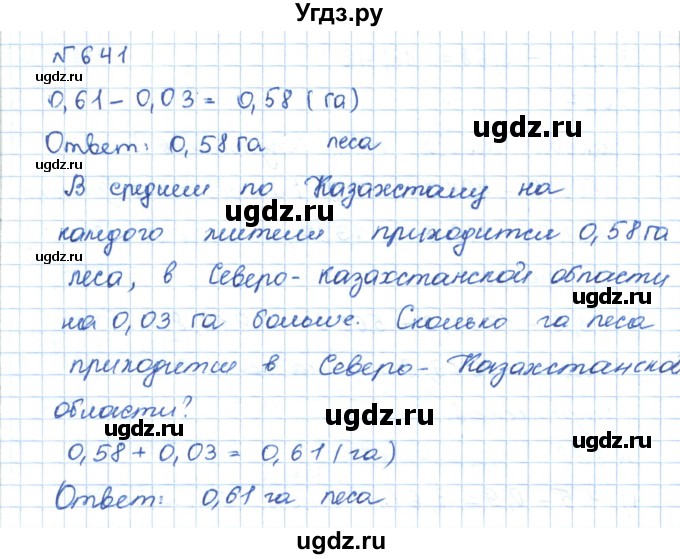 Угдз.ру
№641
0,61 - 0,03 = 0,58 (га)
Ответ: 0,58 га леса
В среднем по Казахстану на
каждого жителя приходится 0,58 га
леса, в Северо-Казахстанской области
на 0,03 га больше. Сколько га леса
приходится в Северо-Казахстанской
области?
0,58 + 0,03 = 0,61 (га)
Ответ: 0,61 га леса
ugdz.ru
ugdz.ru
ugdz.ru
ugdz.ru
ugdz.ru
ugdz.ru
ugdz.ru
ugdz.ru
ugdz.ru
ugdz.ru